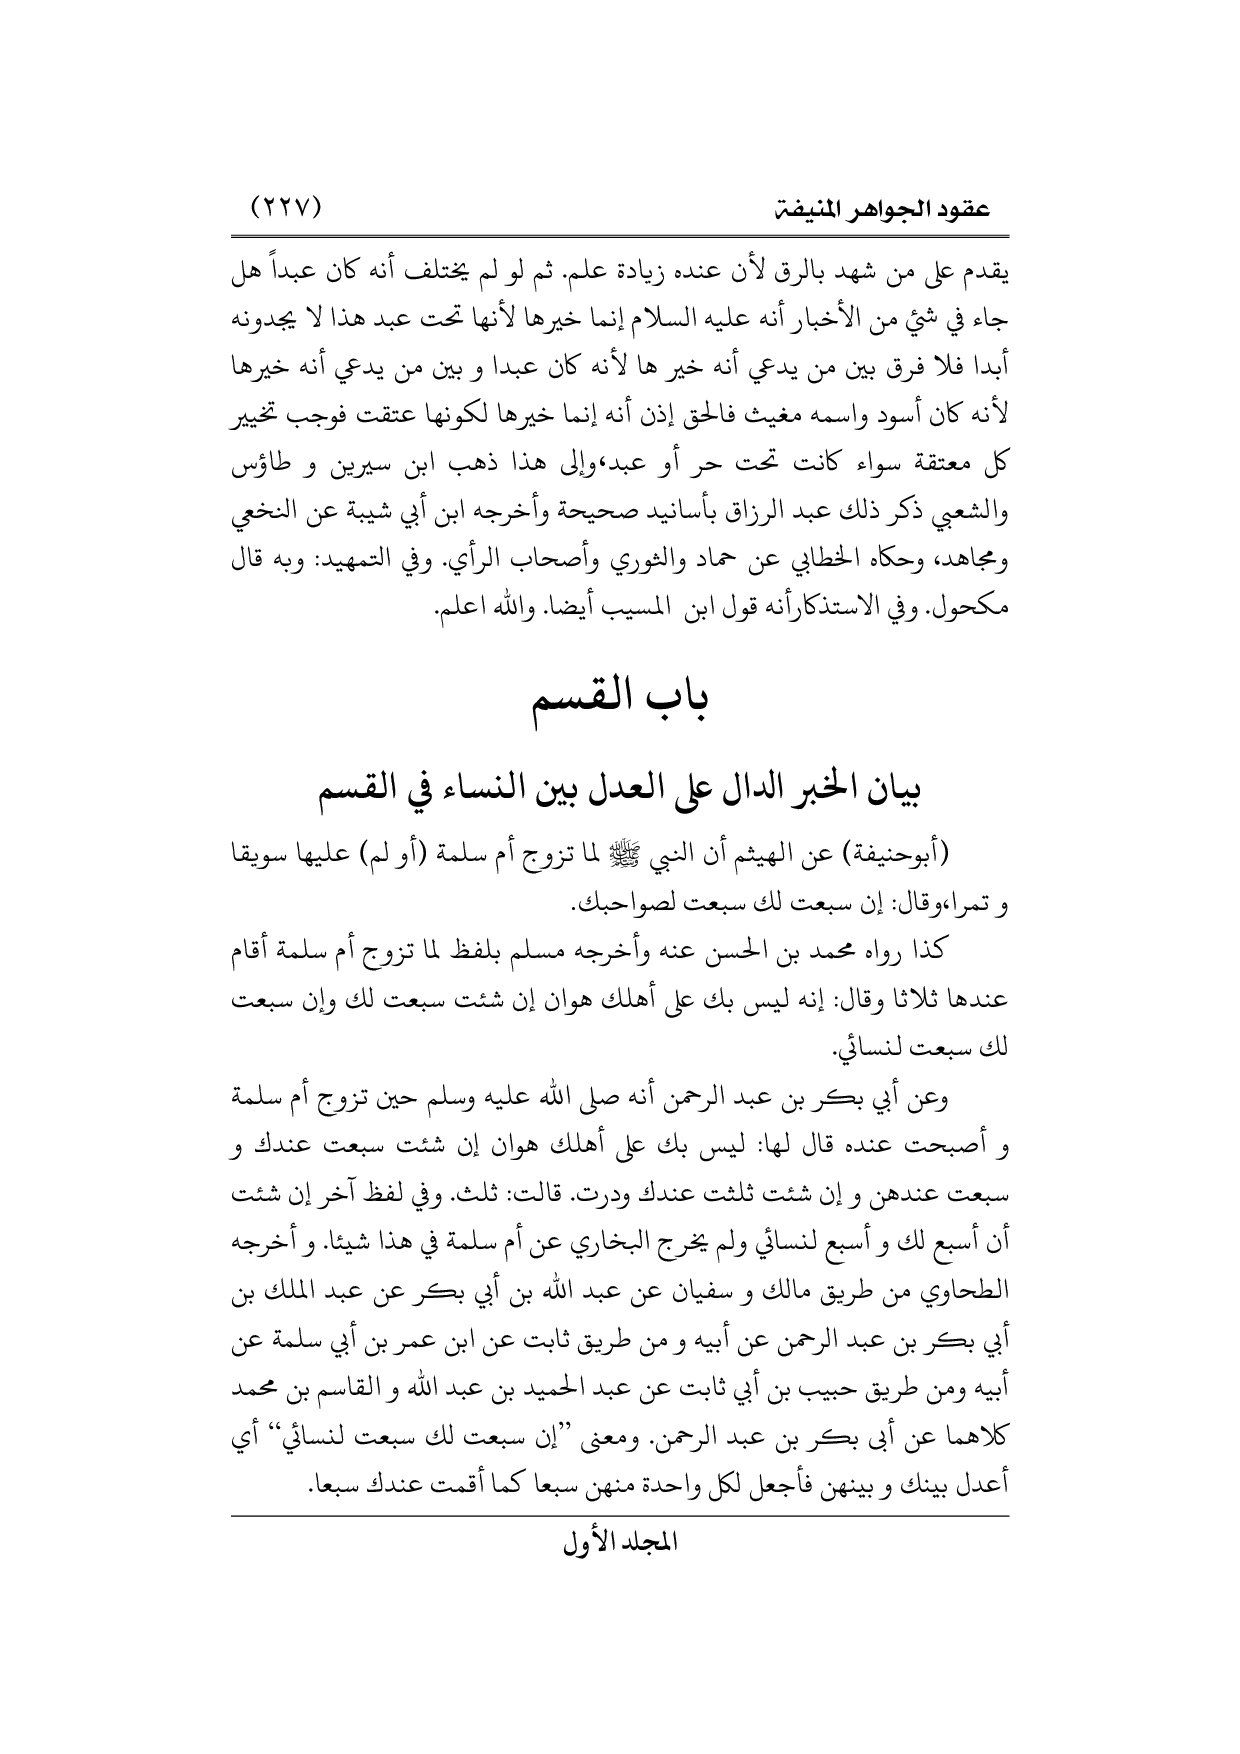 عقود الجواهر المنيفة (٢٢٧)
يقدم على من شهد بالرق لأن عنده زيادة علم. ثم لو لم يختلف أنه كان عبداً هل
جاء في شئ من الأخبار أنه عليه السلام إنما خيرها لأنها تحت عبد هذا لا يجدونه
أبدا فلا فرق بين من يدعي أنه خير ها لأنه كان عبدا و بين من يدعي أنه خيرها
لأنه كان أسود واسمه مغيث فالحق إذن أنه إنما خيرها لكونها عتقت فوجب تخيير
كل معتقة سواء كانت تحت حر أو عبد،وإلى هذا ذهب ابن سيرين و طاؤس
والشعبي ذكر ذلك عبد الرزاق بأسانيد صحيحة وأخرجه ابن أبي شيبة عن النخعي
ومجاهد، وحكاه الخطابي عن حماد والثوري وأصحاب الرأي. وفي التمهيد: وبه قال
مكحول. وفي الاستذكارأنه قول ابن المسيب أيضا. والله اعلم.
باب القسم
بيان الخبر الدال على العدل بين النساء في القسم
(أبوحنيفة) عن الهيثم أن النبي ﷺ لما تزوج أم سلمة (أو لم) عليها سويقا
و تمرا،وقال: إن سبعت لك سبعت لصواحبك.
كذا رواه محمد بن الحسن عنه وأخرجه مسلم بلفظ لما تزوج أم سلمة أقام
عندها ثلاثا وقال: إنه ليس بك على أهلك هوان إن شئت سبعت لك وإن سبعت
لك سبعت لنسائي.
وعن أبي بكر بن عبد الرحمن أنه صلى الله عليه وسلم حين تزوج أم سلمة
و أصبحت عنده قال لها: ليس بك على أهلك هوان إن شئت سبعت عندك و
سبعت عندهن و إن شئت ثلثت عندك ودرت. قالت: ثلث. وفي لفظ آخر إن شئت
أن أسبع لك و أسبع لنسائي ولم يخرج البخاري عن أم سلمة في هذا شيئا. و أخرجه
الطحاوي من طريق مالك و سفيان عن عبد الله بن أبي بكر عن عبد الملك بن
أبي بكر بن عبد الرحمن عن أبيه و من طريق ثابت عن ابن عمر بن أبي سلمة عن
أبيه ومن طريق حبيب بن أبي ثابت عن عبد الحميد بن عبد الله و القاسم بن محمد
كلاهما عن أبى بكر بن عبد الرحمن. ومعنى ”إن سبعت لك سبعت لنسائي“ أي
أعدل بينك و بينهن فأجعل لكل واحدة منهن سبعا كما أقمت عندك سبعا.
المجلد الأول